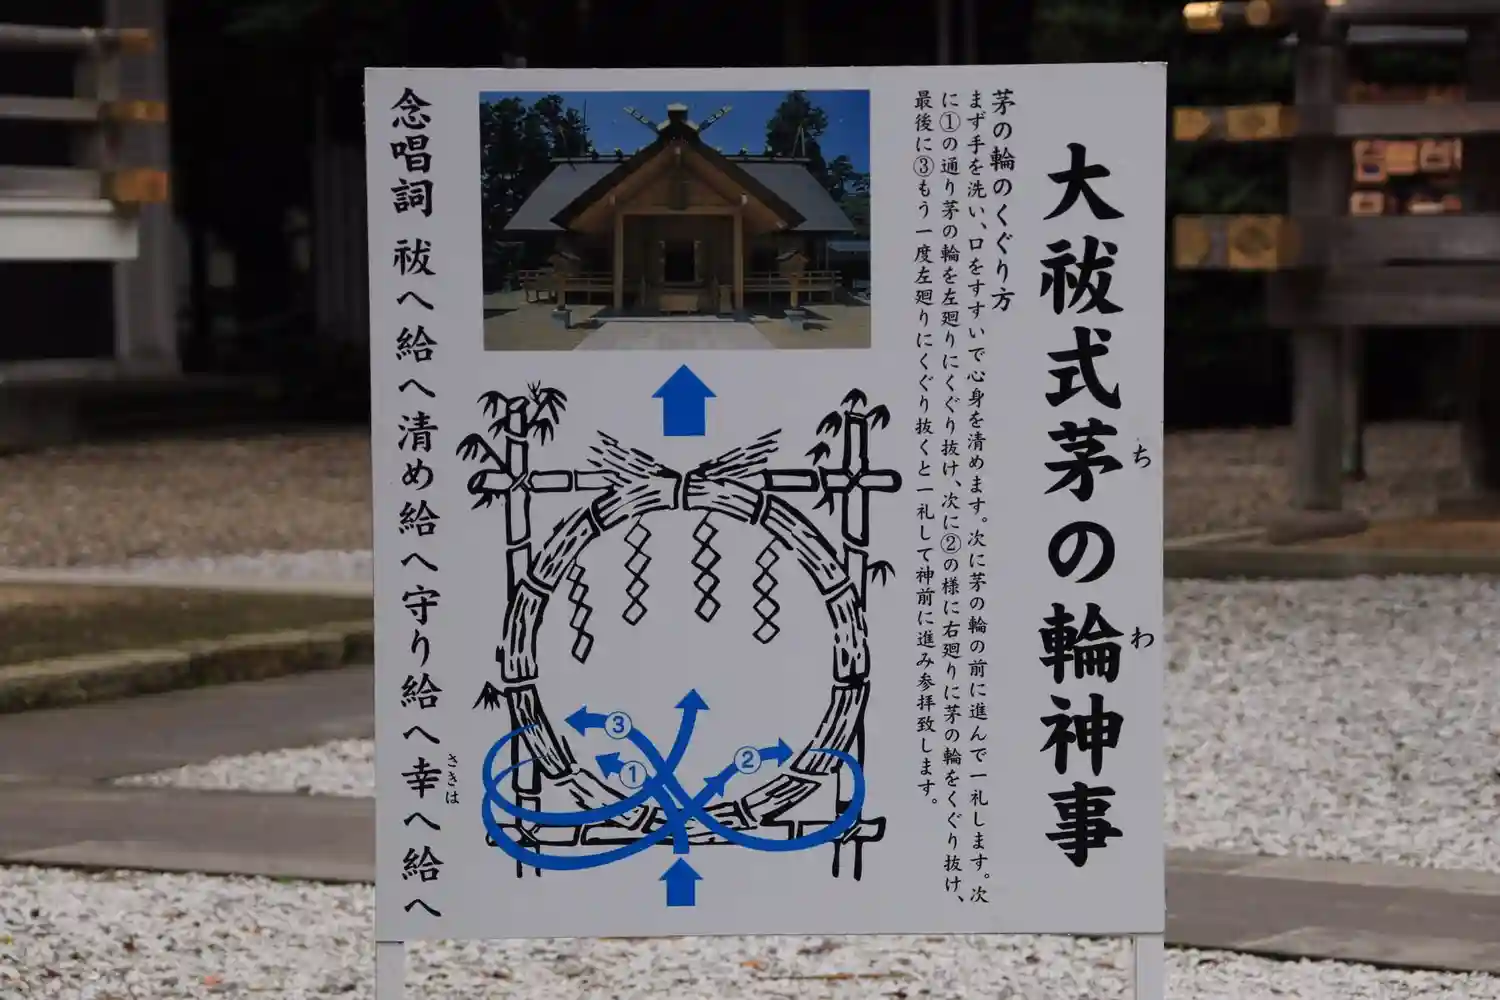 大祓式茅の輪神事
ち
わ
茅の輪のくぐり方
まず手を洗い、口をすすいで心身を清めます。次に茅の輪の前に進んで一礼します。次
に①の通り茅の輪を左廻りにくぐり抜け、次に②の様に右廻りに茅の輪をくぐり抜け、
最後に③もう一度左廻りにくぐり抜くと一礼して神前に進み参拝致します。
③
①
②
念唱詞 祓へ給へ清め給へ守り給へ幸へ給へ
さきは